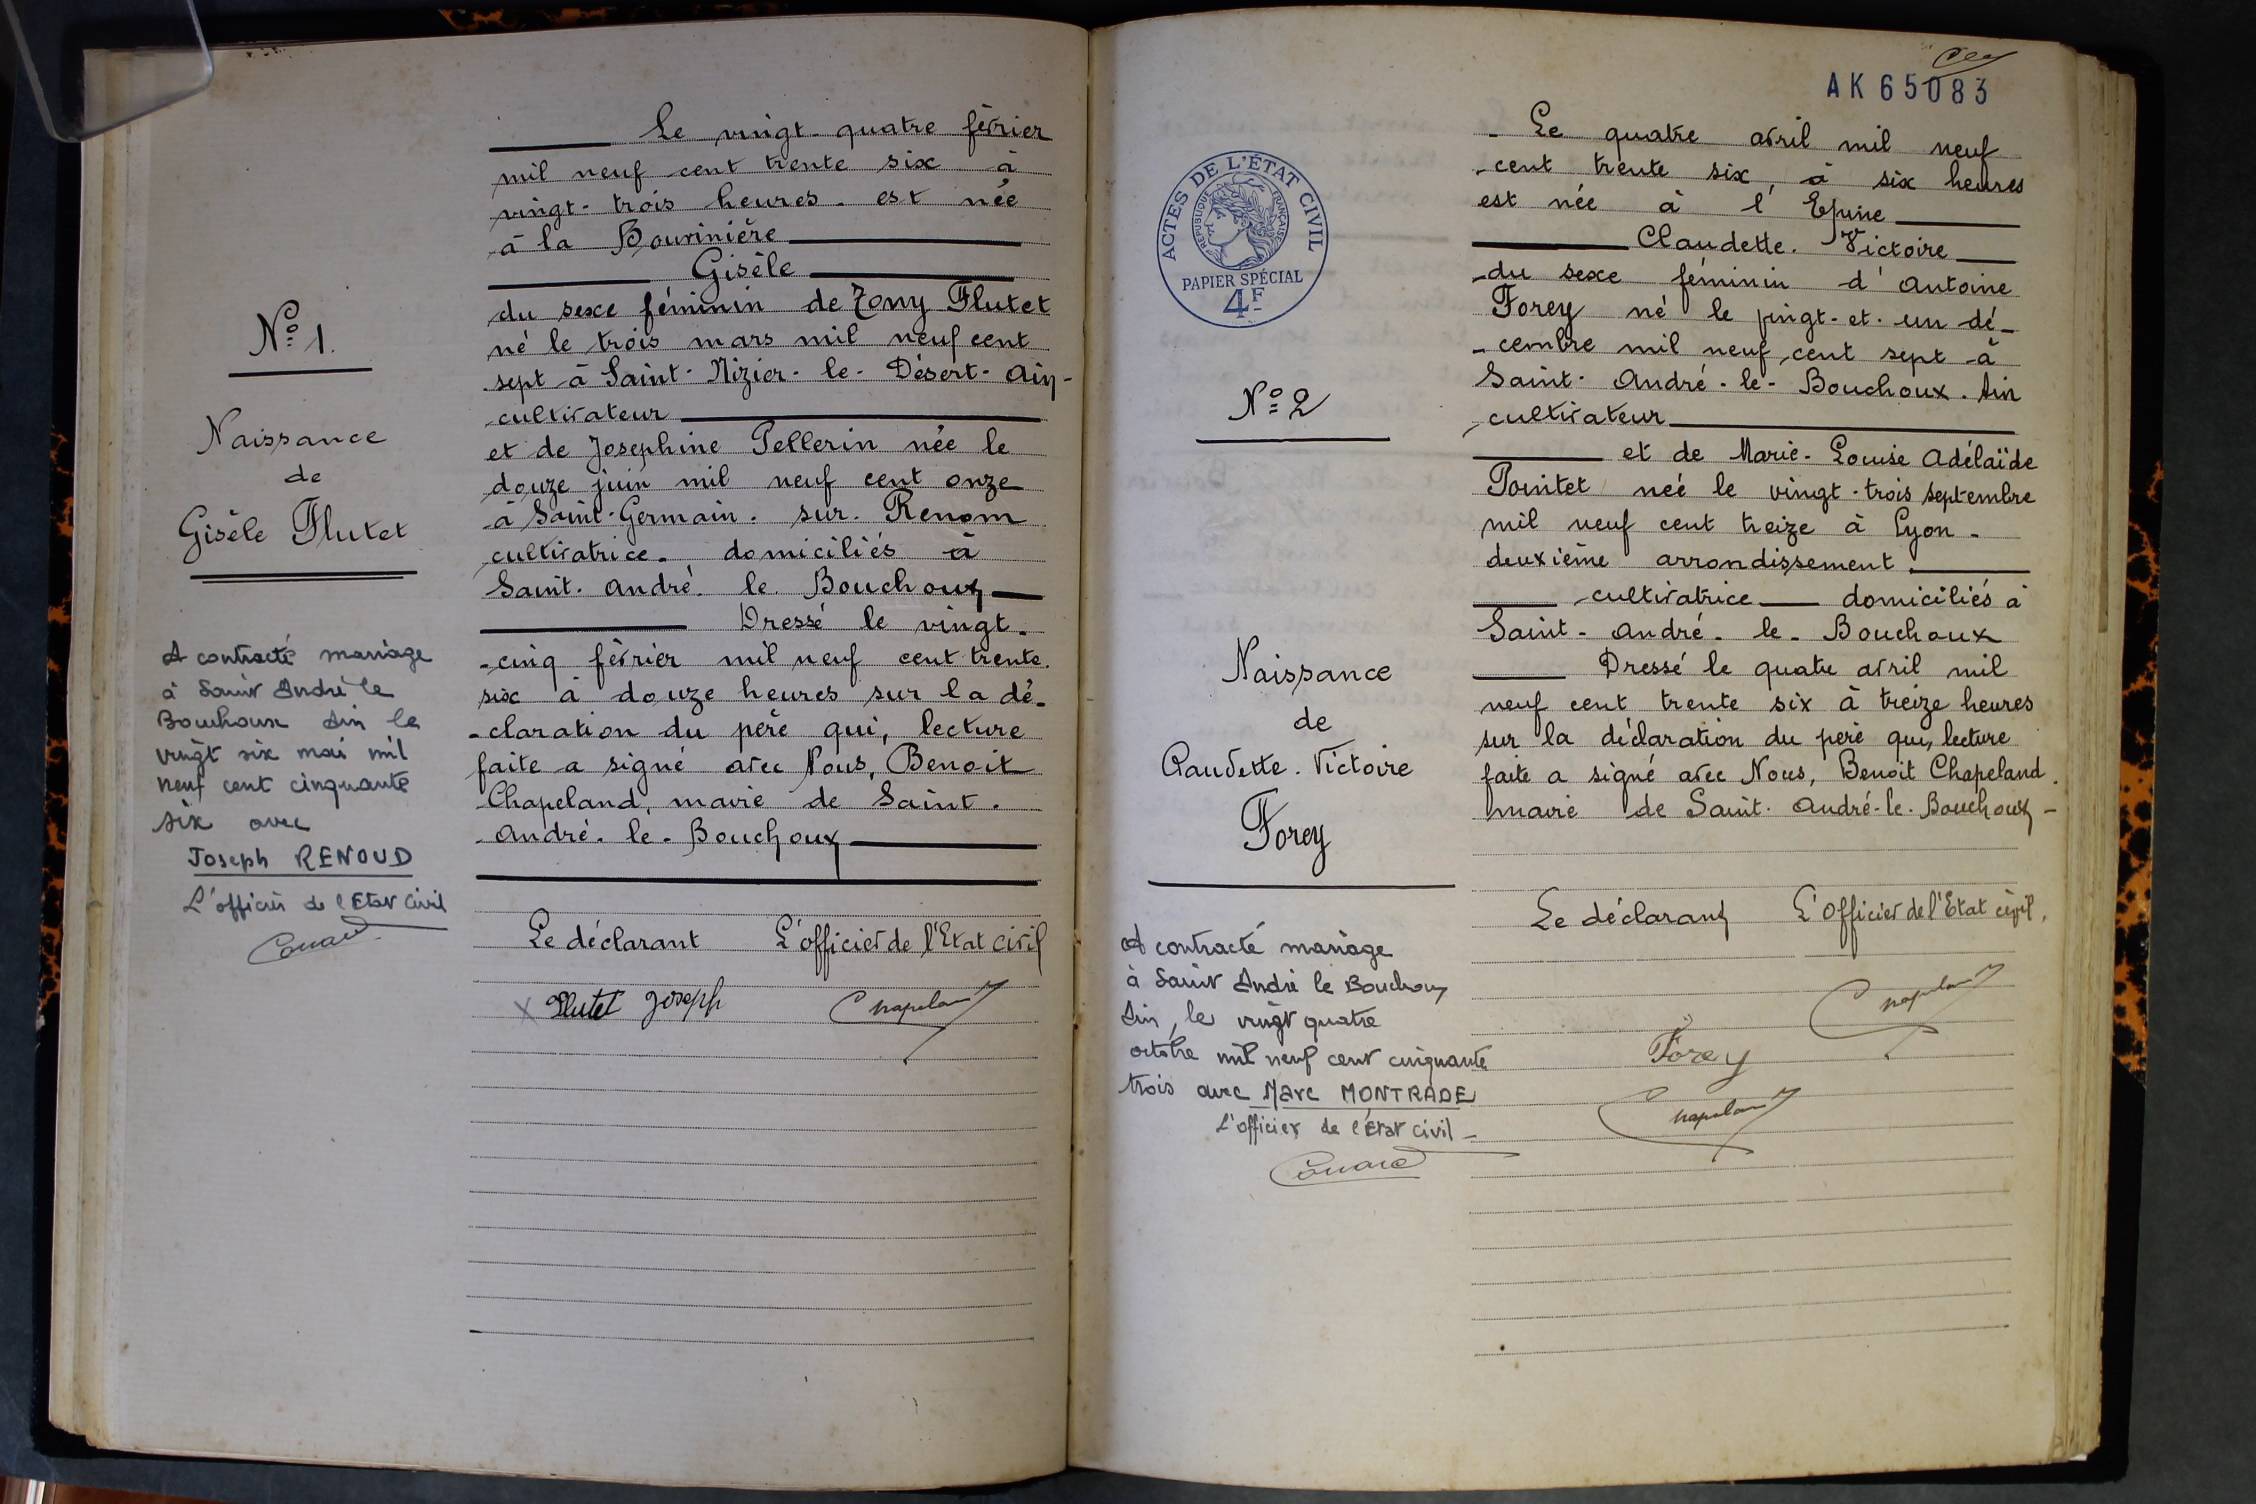 N° 1.
Naissance
de
Gisèle Flutet
A contracté mariage
à Saint André le
Bouchoux Ain le
vingt six mai mil
neuf cent cinquante
six avec
Joseph RENOUD
L'officier de l'Etat Civil
Le vingt-quatre février
mil neuf cent trente six à
vingt-trois heures. est née
à la Bouvinière
Gisèle
du sexe féminin de Tony Flutet
né le trois mars mil neuf cent
sept à Saint-Nizier-le-Désert-Ain-
cultivateur
et de Josephine Pellerin née le
douze juin mil neuf cent onze
à Saint-Germain. sur. Renom
cultivatrice. domiciliés à
Saint. André. le. Bouchoux
Dressé le vingt-
-cinq février mil neuf cent trente.
six à douze heures sur la dé-
-claration du père qui, lecture
faite a signé avec Nous, Benoit
Chapeland, maire de Saint.
André. le. Bouchoux
Le déclarant L'officier de l'Etat civil
Flutet Joseph Chapeland
AK 65083
ACTES DE L'ÉTAT CIVIL
RÉPUBLIQUE FRANÇAISE
PAPIER SPÉCIAL
4F
N° 2
Naissance
de
Claudette. Victoire
Forey
A contracté mariage
à Saint André le Bouchoux
Ain, le vingt quatre
octobre mil neuf cent cinquante
trois avec Marc MONTRADE
L'officier de l'Etat civil -
- Le quatre avril mil neuf
-cent trente six, à six heures
est née à l'Epine
Claudette. Victoire
-du sexe féminin d'Antoine
Forey né le vingt-et-un dé-
-cembre mil neuf cent sept à
Saint-André-le-Bouchoux. Ain
cultivateur
et de Marie-Louise Adélaïde
Pointet née le vingt-trois septembre
mil neuf cent treize à Lyon-
deuxième arrondissement
cultivatrice domiciliés à
Saint-André-le-Bouchoux
Dressé le quatre avril mil
neuf cent trente six à treize heures
sur la déclaration du père qui, lecture
faite a signé avec Nous, Benoit Chapeland.
maire de Saint-André-le-Bouchoux-
Le déclarant L'Officier de l'Etat civil,
Chapeland
Forey
Chapeland